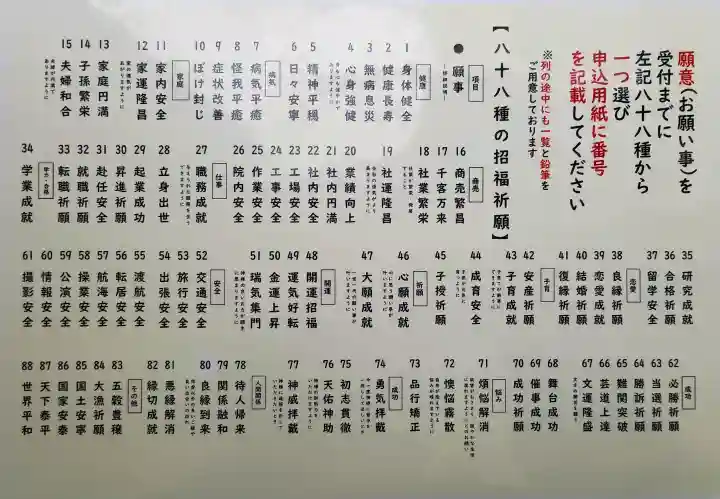 願意(お願い事)を
受付までに
左記八十八種から
一つ選び
申込用紙に番号
を記載してください
※列の途中にも一覧と鉛筆を
ご用意しております
【八十八種の招福祈願】
項目
●願事
健康
1 身体健全
2 健康長寿
3 無病息災
4 心身強健
5 精神平穏
6 日々安寧
病気
7 病気平癒
8 怪我平癒
9 症状改善
10 ぼけ封じ
家庭
11 家内安全
12 家運隆昌
13 家庭円満
14 子孫繁栄
15 夫婦和合
商売
16 商売繁昌
17 千客万来
18 社業繁栄
19 社運隆昌
20 業績向上
21 社内円満
22 社内安全
23 工場安全
24 工事安全
25 作業安全
26 院内安全
仕事
27 職務成就
28 立身出世
29 起業成功
30 昇進祈願
31 赴任安全
32 就職祈願
33 転職祈願
学力・合格
34 学業成就
35 研究成就
36 合格祈願
37 留学安全
恋愛
38 良縁祈願
39 恋愛成就
40 結婚祈願
41 復縁祈願
子育
42 安産祈願
43 子育成就
44 成育安全
45 子授祈願
祈願
46 心願成就
47 大願成就
開運
48 開運招福
49 運気好転
50 金運上昇
51 瑞気集門
安全
52 交通安全
53 旅行安全
54 出張安全
55 渡航安全
56 転居安全
57 航海安全
58 操業安全
59 公演安全
60 情報安全
61 撮影安全
成功
62 必勝祈願
63 当選祈願
64 勝訴祈願
65 難関突破
66 芸道上達
67 文運隆盛
68 舞台成功
69 催事成功
70 成功祈願
悩み
71 煩悩解消
72 懊悩霧散
73 品行矯正
成功
74 勇気拝戴
75 初志貫徹
76 天佑神助
77 神威拝戴
人間関係
78 待人帰来
79 関係融和
80 良縁到来
81 悪縁解消
82 縁切成就
その他
83 五穀豊穣
84 大漁祈願
85 国土安寧
86 国家安泰
87 天下泰平
88 世界平和